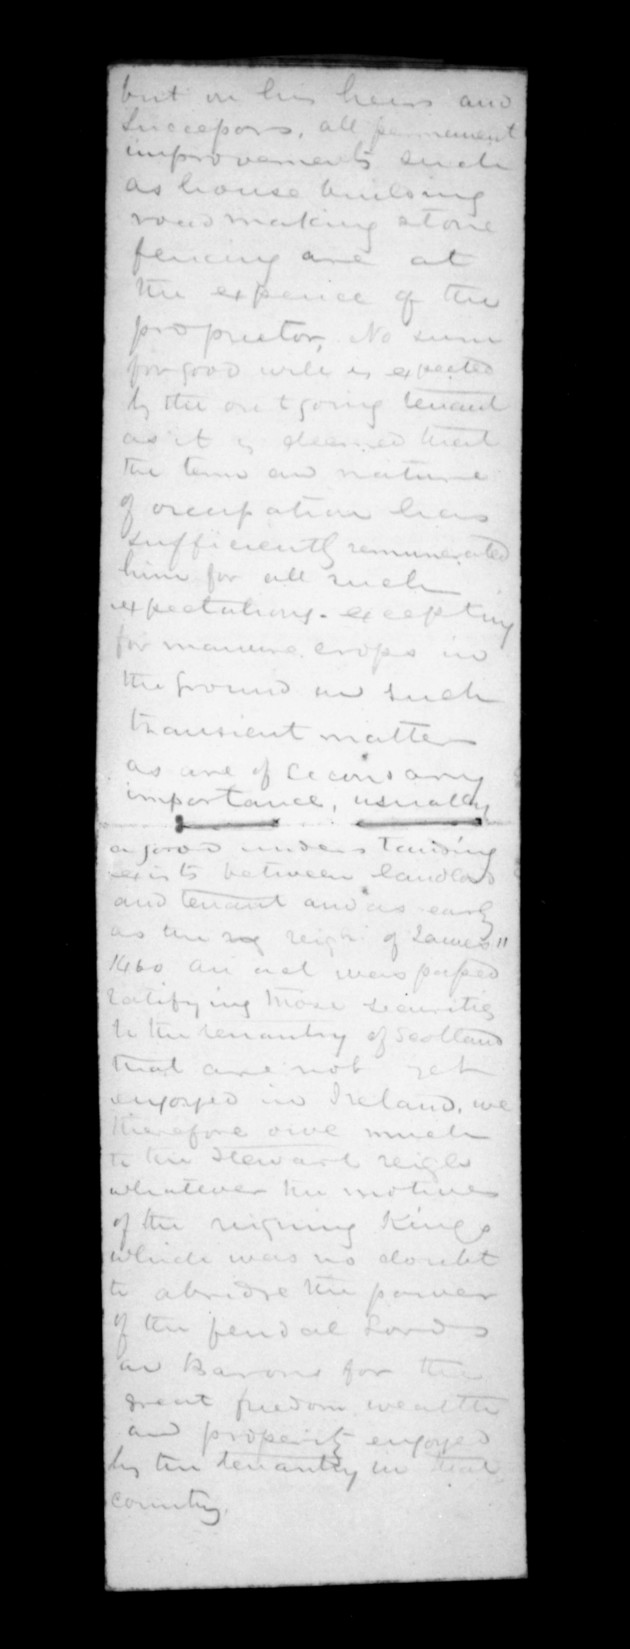 but on his heirs and
Successors, all permanent
improvements such
as house building
road making stone
fencing are at
the expence of the
proprietor, No sum
for good will is expected
by the outgoing tenant
as it is deemed that
the term and nature
of occupation has
sufficiently remunerated
him for all such
expectations. excepting
for manure crops in
the ground and such
transient matters
as are of
importance, usually
a good understanding
exists between landlord
and tenant and as early
as the reign of James II
1460 an act was passed
ratifying those securities
to the tenantry of Scotland
that are not yet
enjoyed in Ireland, we
therefore owe much
to the Stewart reign
whatever the motives
of the reigning Kings
which was no doubt
to abridge the power
of the feudal Lords
and Barons for the
great freedom wealth
and prosperity enjoyed
by the tenantry in that
country.